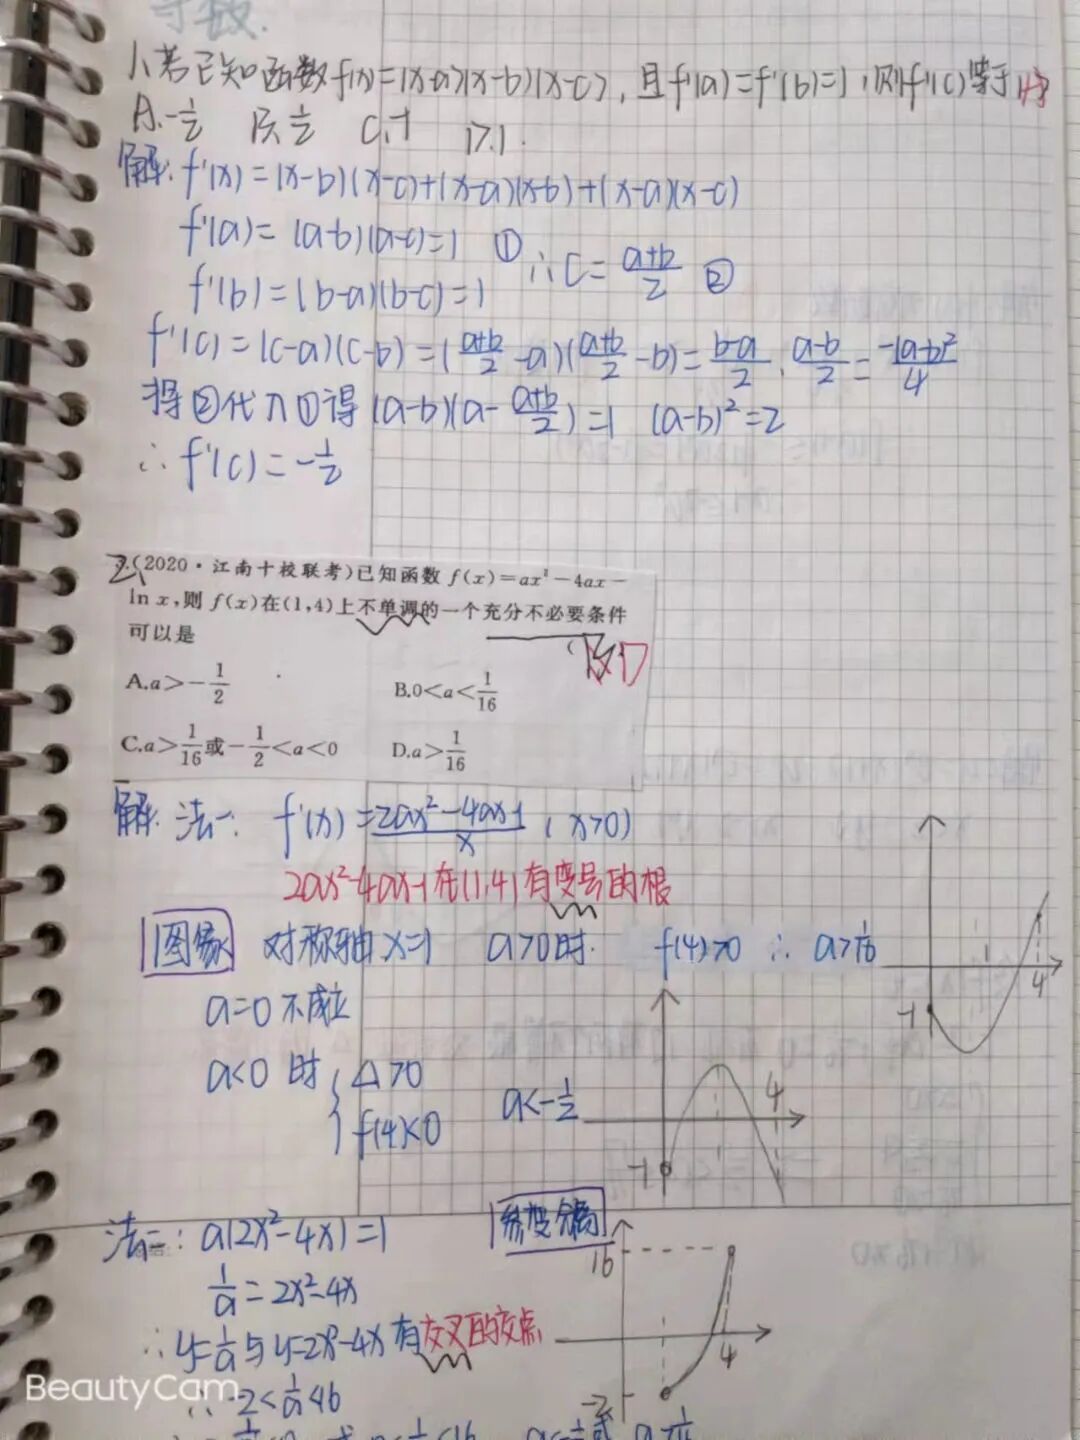 导数.
1、若已知函数f(x)=(x-a)(x-b)(x-c),且f'(a)=f'(b)=1,则f'(c)等于
A.-1/2 B.1/2 C.-1 D.1.
解: f'(x)=(x-b)(x-c)+(x-a)(x-b)+(x-a)(x-c)
f'(a)=(a-b)(a-c)=1 ①
∴C=(a+b)/2 ②
f'(b)=(b-a)(b-c)=1
f'(c)=(c-a)(c-b)=((a+b)/2-a)((a+b)/2-b)=(b-a)/2·(a-b)/2=-(a-b)²/4
将②代入①得(a-b)(a-(a+b)/2)=1 (a-b)²=2
∴f'(c)=-1/2
2.(2020·江南十校联考)已知函数 f(x)=ax²-4ax-
ln x,则 f(x)在(1,4)上不单调的一个充分不必要条件
可以是
( D
A.a>-1/2 B.0<a<1/16
C.a>1/16或-1/2<a<0 D.a>1/16
解: 法一: f'(x)=(2ax²-4ax-1)/x (x>0)
2ax²-4ax-1在(1,4)有变号的根
图像 对称轴x=1 a>0时. f(4)>0 ∴a>1/16
-1 1 4
a=0不成立
a<0 时 { △>0
f(4)<0
a<-1/2
-1 1 4
法二: a(2x²-4x)=1 参变分离
1/a=2x²-4x
16
∴y=1/a与y=2x²-4x有交叉的交点
4
-2
∴-2<1/a<16
BeautyCam